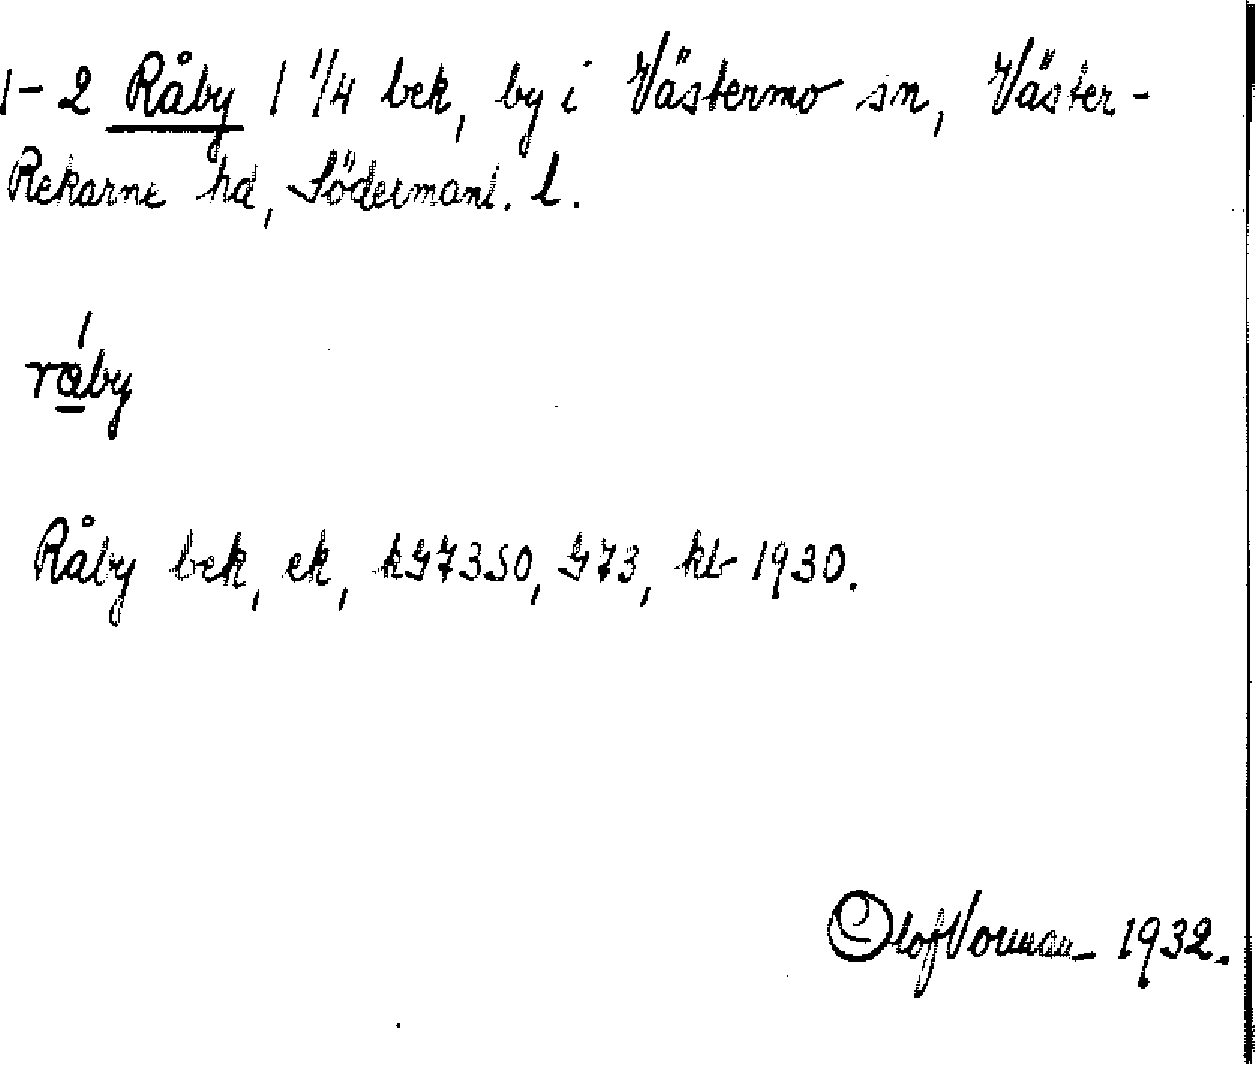 1-2 Råby 1 1/4 bek, by i Västermo sn, Väster-
Rekarne hd, Södermanl. l.
råby
Råby bek, ek, kG7350, G73, kb 1930.
Olof 1932.